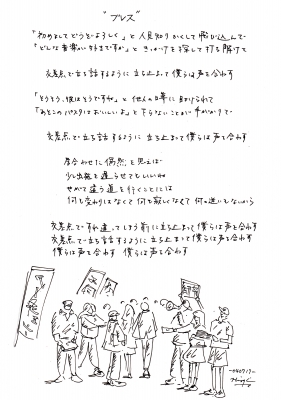 "ブレス"
「初めましてどうぞよろしく」と人見知りかくして飛び込んで
「どんな音楽がお好きですか」ときっかけを探して打ち解けて
交差点で立ち話するように立ち止まって僕らは声を合わす
「そうそう、彼はどうですね」と他人の噂に助けられて
「あそこのパスタはおいしいよ」と下らないことが手がかりで
交差点で立ち話するように立ち止まって僕らは声を合わす
居合わせた偶然を思えば
少し出鱈を遅らせてもいいね
やがて違う道を行くことには
何も変わりはなくて何も寂しくなくて何の迷いもないから
交差点ですれ違ってしまう前に立ち止まって僕らは声を合わす
交差点で立ち話するように立ち止まって僕らは声を合わす
僕らは声を合わす 僕らは声を合わす